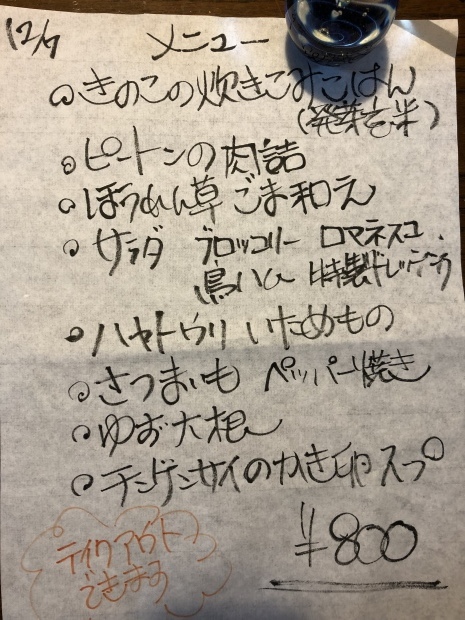 12/7
メニュー
きのこの炊きこみごはん
(発芽玄米)
ピートンの肉詰
ほうれん草ごま和え
サラダ ブロッコリー ロマネスコ.
鳥ハム 特製ドレッシング
ハヤトウリ いためもの
さつまいも ペッパー焼き
ゆず大根
チンゲンサイのかき卵スープ
¥800
テイクアウト
できます